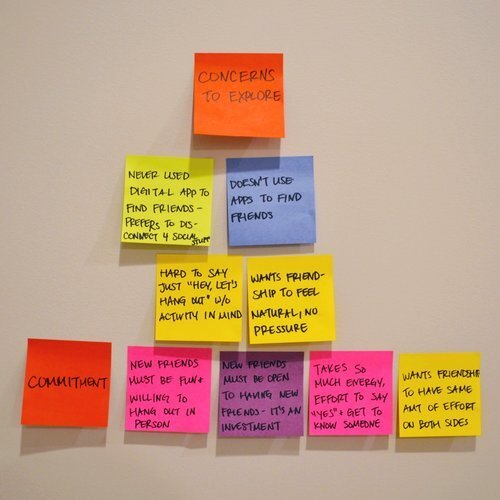 CONCERNS
TO EXPLORE
NEVER USED
DIGITAL APP TO
FIND FRIENDS -
PREFERS TO DIS-
CONNECT 4 SOCIAL
STUFF
DOESN'T USE
APPS TO FIND
FRIENDS
HARD TO SAY
JUST "HEY, LET'S
HANG OUT" W/O
ACTIVITY IN MIND
WANTS FRIEND-
SHIP TO FEEL
NATURAL, NO
PRESSURE
COMMITMENT
NEW FRIENDS
MUST BE FUN +
WILLING TO
HANG OUT IN
PERSON
NEW FRIENDS
MUST BE OPEN
TO HAVING NEW
FRIENDS - IT'S AN
INVESTMENT
TAKES SO
MUCH ENERGY,
EFFORT TO SAY
"YES" + GET TO
KNOW SOMEONE
WANTS FRIENDSHIP
TO HAVE SAME
AMT OF EFFORT
ON BOTH SIDES